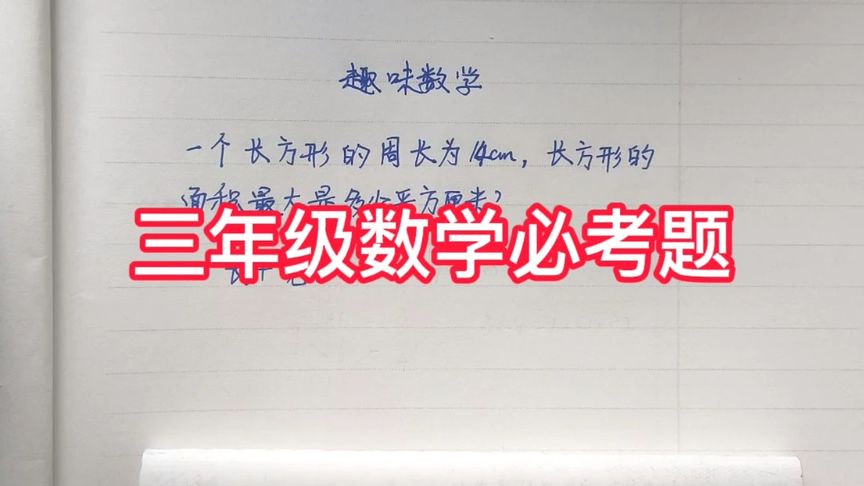 趣味数学
一个长方形的周长为14cm，长方形的
面积最大是多少平方厘米？
三年级数学必考题
长+宽